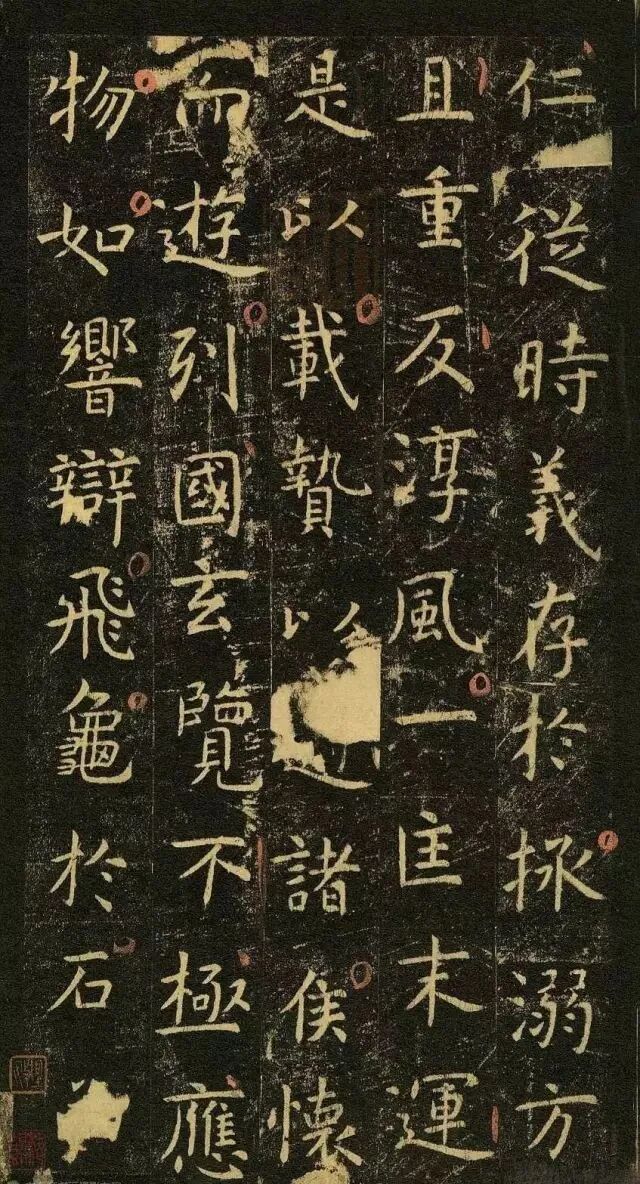 仁從時義存於拯溺方
且重反淳風一匡末運
是以載贄以諸侯懷
而遊列國玄覽不極應
物如響辯飛龜於石